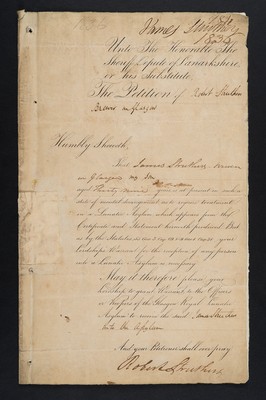 James Struthers
1835
Unto The Honorable The
Sheriff Depute of Lanarkshire
or his Substitute,
The Petition of Robert Struthers
Brewer in Glasgow
Humbly Sheweth,
That James Struthers Brewer
in Glasgow my Son
aged Twenty nine years is at present in such a
state of mental derangement as to require treatment
in a Lunatic Asylum which appears from the
Certificate and Statement herewith produced But
as by the Statutes your
Lordships Warrant for the reception of any person
into a Lunatic Asylum is necessary
May it therefore please your
Lordship to grant Warrant to the Officers
or Keepers of the Glasgow Royal Lunatic
Asylum to receive the said James Struthers
into the Asylum
And your Petitioner shall ever pray
Robert Struthers